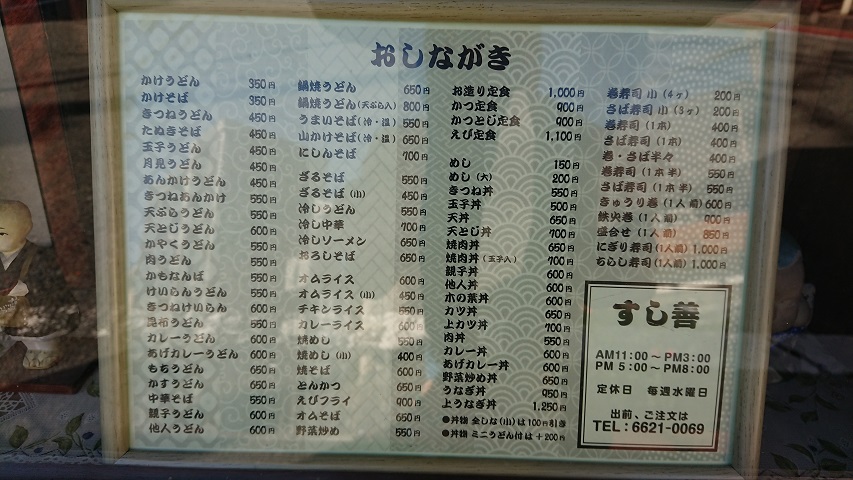 おしながき
かけうどん 350円
かけそば 350円
きつねうどん 450円
たぬきそば 450円
玉子うどん 450円
月見うどん 450円
あんかけうどん 450円
きつねあんかけ 550円
天ぷらうどん 550円
天とじうどん 600円
かやくうどん 550円
肉うどん 550円
かもなんば 550円
けいらんうどん 550円
きつねけいらん 600円
昆布うどん 550円
カレーうどん 600円
あげカレーうどん 600円
もちうどん 650円
かすうどん 550円
中華そば 550円
親子うどん 600円
他人うどん 600円
鍋焼うどん 650円
鍋焼うどん(天ぷら入) 800円
うまいそば(冷・温) 550円
山かけそば(冷・温) 650円
にしんそば 700円
ざるそば 550円
ざるそば(小) 450円
冷しうどん 550円
冷し中華 700円
冷しソーメン 650円
おろしそば 650円
オムライス 600円
オムライス(小) 450円
チキンライス 550円
カレーライス 600円
焼めし 550円
焼めし(小) 400円
焼そば 600円
とんかつ 650円
えびフライ 900円
オムそば 650円
野菜炒め 550円
お造り定食 1,000円
かつ定食 900円
かつとじ定食 900円
えび定食 1,100円
めし 150円
めし(大) 200円
きつね丼 550円
玉子丼 500円
天丼 650円
天とじ丼 700円
焼肉丼 650円
焼肉丼(玉子入) 700円
親子丼 600円
他人丼 600円
木の葉丼 600円
カツ丼 650円
上カツ丼 700円
肉丼 550円
カレー丼 600円
あげカレー丼 600円
野菜炒め丼 650円
うなぎ丼 950円
上うなぎ丼 1,250円
●丼物 全しな(小)は100円引き
●丼物 ミニうどん付は+200円
巻寿司 小(4ヶ) 200円
さば寿司 小(3ヶ) 200円
巻寿司(1本) 400円
さば寿司(1本) 400円
巻・さば半々 400円
巻寿司(1本半) 550円
さば寿司(1本半) 550円
きゅうり巻(1人前) 600円
鉄火巻(1人前) 900円
盛合せ(1人前) 850円
にぎり寿司(1人前) 1,000円
ちらし寿司(1人前) 1,000円
すし善
AM11:00～PM3:00
PM 5:00～PM8:00
定休日 毎週水曜日
出前、ご注文は
TEL:6621-0069